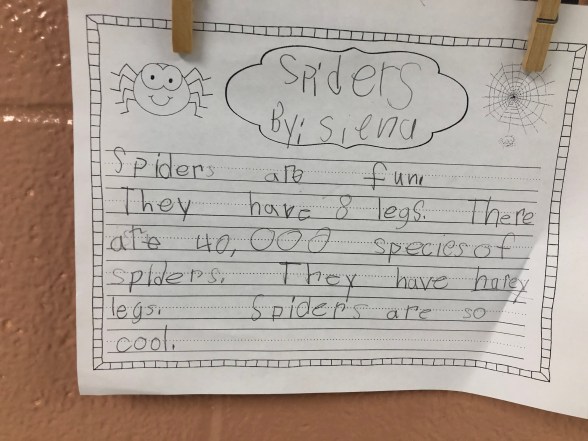 Spiders
By: Siena
Spiders are fun.
They have 8 legs. There
are 40,000 species of
spiders. They have harey
legs. Spiders are so
cool.